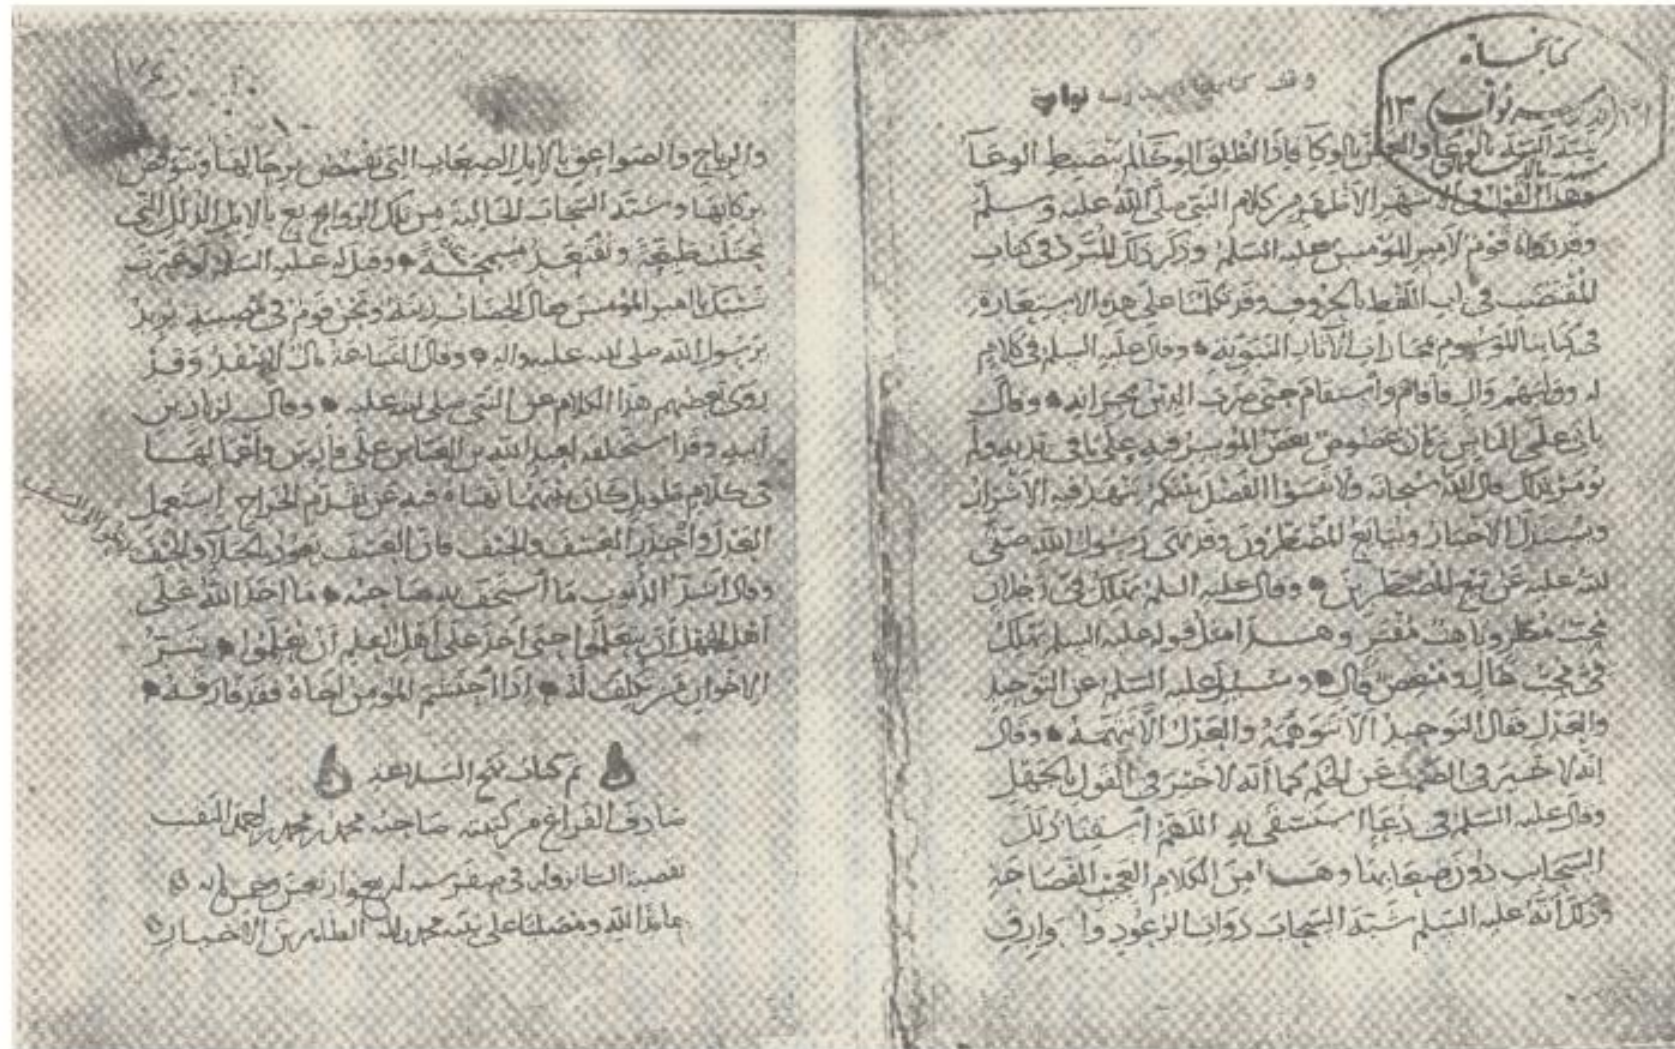 كتابخانه
مدرسه نواب
١٣
وقف كتابخانه مدرسه نواب
وهذا القول في الاشهر الاظهر من كلام النبي صلى الله عليه وسلم
وقد رواه قوم لامير المؤمنين عليه السلم وذكر ذلك المبرد في كتاب
المقتضب في باب اللفظ بالحروف وقد تكلمنا على هذه الاستعارة
في كتابنا الموسوم مجازات الآثار النبوية وقال عليه السلم في كلام
له ووليهم وال فاقام واستقام حتى ضرب الدين بجرانه وقال
ياتي على الناس زمان عضوض يعض الموسر فيه على ما في يديه ولم
يؤمر بذلك قال الله سبحانه ولا تنسوا الفضل بينكم ينهد فيه الاشرار
ويستذل الاخيار ويبايع المضطرون وقد نهى رسول الله صلى
الله عليه عن بيع المضطرين وقال عليه السلم يهلك في رجلان
محب مطر وباهت مفتر وهذا مثل قوله عليه السلم يهلك
في محب غال ومبغض قال وسئل عليه السلم عن التوحيد
والعدل فقال التوحيد الا تتوهمه والعدل الا تتهمه وقال
انه لا خير في الصمت عن الحكم كما انه لا خير في القول بالجهل
وقال عليه السلم في دعاء استسقى به اللهم اسقنا ذلل
السحاب دون صعابها وهذا من الكلام العجيب الفصاحة
وذلك انه عليه السلم شبه السحاب ذوات الرعود والبوارق
والرياح والصواعق بالابل الصعاب التي تقمص برحالها وتتوقص
بركابها وشبه السحاب الخالية من تلك الروائع بالابل الذلل التي
تحتلب طيعة وتقتعد مسمحة وقيل له عليه السلم لو غيرت
شيبك يا امير المؤمنين فقال الخضاب زينة ونحن قوم في مصيبة يريد
برسول الله صلى الله عليه واله وقال القناعة مال لا ينفد وقد
روى بعضهم هذا الكلام عن النبي صلى الله عليه وقال لزياد بن
ابيه وقد استخلفه لعبد الله بن العباس على فارس واعمالها
في كلام طويل كان بينهما نهاه فيه عن تقدم الخراج استعمل
العدل واحذر العسف والحيف فان العسف يعود بالجلاء والحيف
وقال اشد الذنوب ما استخف به صاحبه ما اخذ الله على
اهل الجهل ان يتعلموا حتى اخذ على اهل العلم ان يعلموا شر
الاخوان من تكلف له اذا احتشم المؤمن اخاه فقد فارقه
تم كتاب نهج البلاغة
صادف الفراغ من كتبته صاحبه محمد بن محمد بن احمد النقيب
بقصبة السانزوار في صفر سنه اربع واربعين وخمس مايه
حامدا لله ومصليا على نبيه محمد واله الطاهرين الاخيار